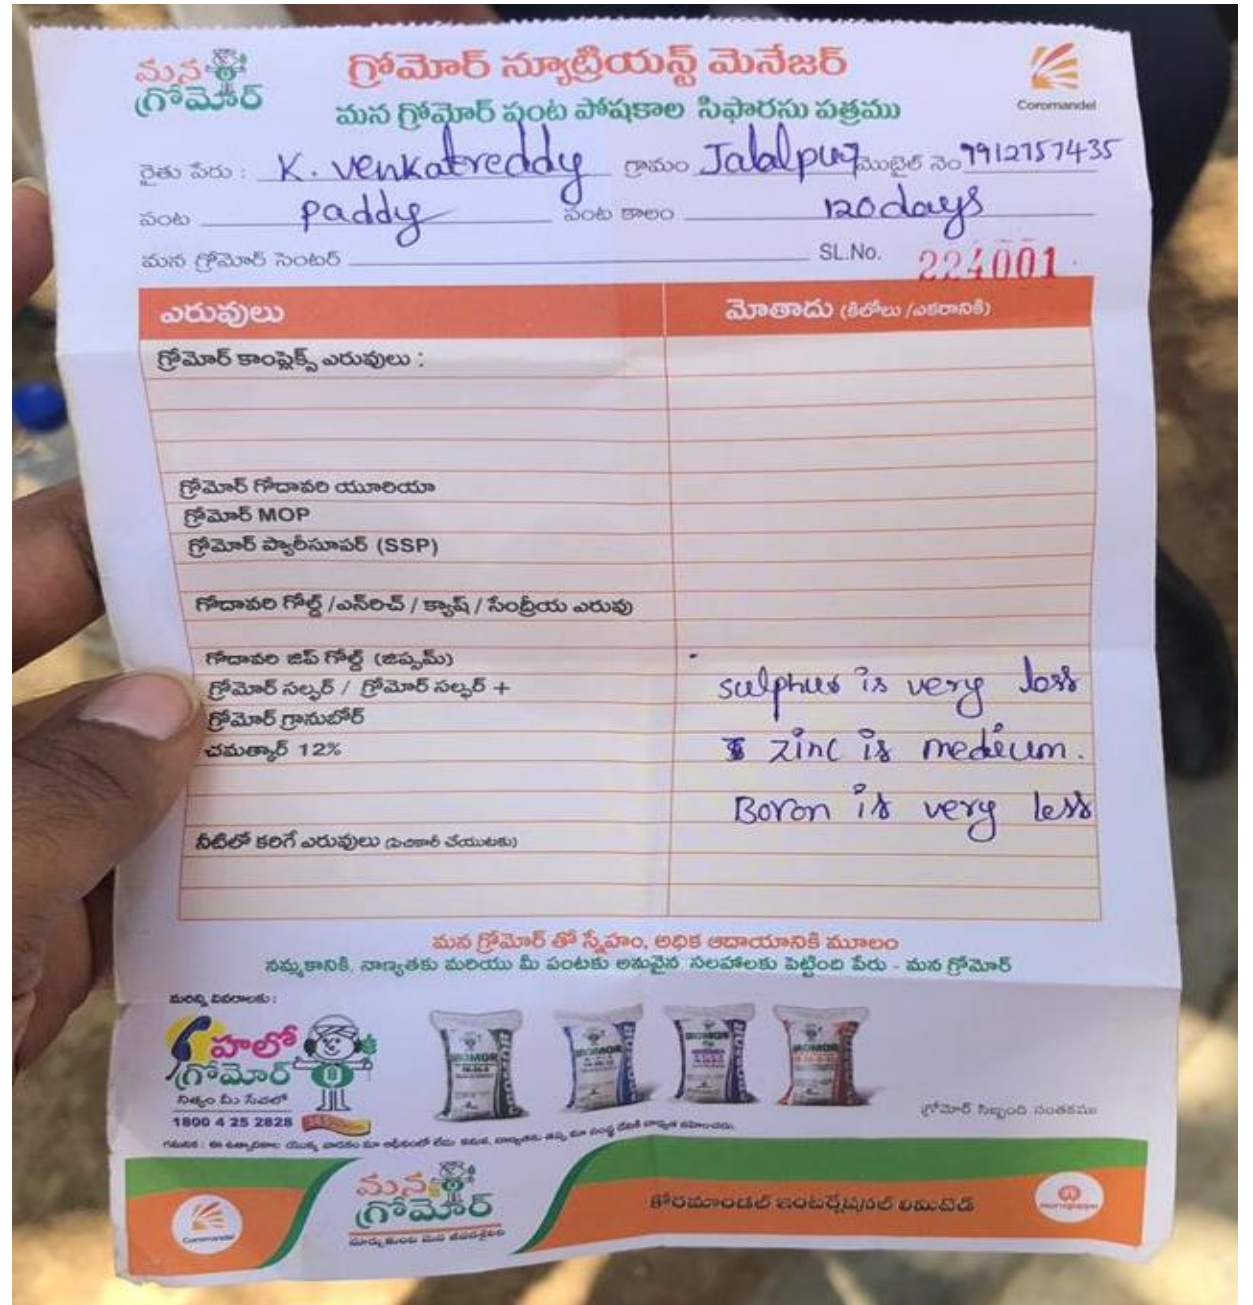 మన గ్రోమోర్
గ్రోమోర్ న్యూట్రియన్ట్ మెనేజర్
మన గ్రోమోర్ పంట పోషకాల సిఫారసు పత్రము
Coromandel
రైతు పేరు : K. Venkatreddy గ్రామం Jalalpur మొబైల్ నెం 9912757435
పంట paddy పంట కాలం 120 days
మన గ్రోమోర్ సెంటర్ SL.No. 224001
ఎరువులు మోతాదు (కిలోలు /ఎకరానికి)
గ్రోమోర్ కాంప్లెక్స్ ఎరువులు :
గ్రోమోర్ గోదావరి యూరియా
గ్రోమోర్ MOP
గ్రోమోర్ ప్యారీసూపర్ (SSP)
గోదావరి గోల్డ్ /ఎన్‌రిచ్ / క్యాష్ / సేంద్రీయ ఎరువు
గోదావరి జిప్ గోల్డ్ (జిప్సమ్)
గ్రోమోర్ సల్ఫర్ / గ్రోమోర్ సల్ఫర్ + sulphur is very less
గ్రోమోర్ గ్రానుబోర్
చమత్కార్ 12% zinc is medium.
Boron is very less
నీటిలో కరిగే ఎరువులు (పిచికారీ చేయుటకు)
మన గ్రోమోర్ తో స్నేహం, అధిక ఆదాయానికి మూలం
నమ్మకానికి, నాణ్యతకు మరియు మీ పంటకు అనువైన సలహాలకు పెట్టింది పేరు - మన గ్రోమోర్
మరిన్ని వివరాలకు :
హలో
గ్రోమోర్
నిత్యం మీ సేవలో
1800 4 25 2828
గ్రోమోర్ సిబ్బంది సంతకము
మన గ్రోమోర్
కోరమాండల్ ఇంటర్నేషనల్ లిమిటెడ్
Coromandel
murugappa